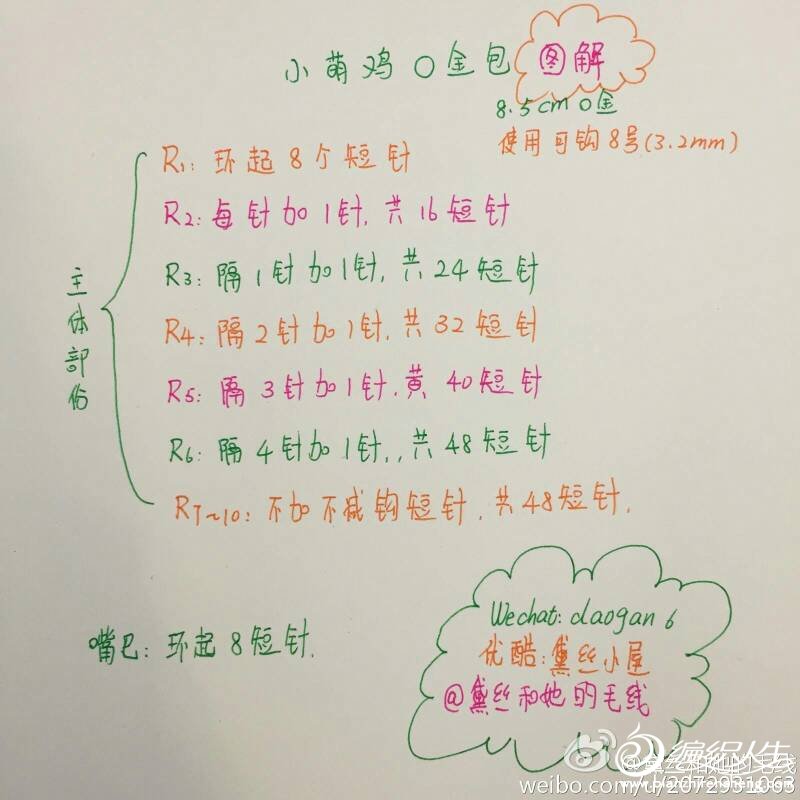 小萌鸡O金包图解
8.5cm O金
使用可钩8号(3.2mm)
主体部份
R1: 环起8个短针
R2: 每针加1针, 共16短针
R3: 隔1针加1针, 共24短针
R4: 隔2针加1针, 共32短针
R5: 隔3针加1针, 黄40短针
R6: 隔4针加1针,, 共48短针
R7~10: 不加不减钩短针, 共48短针.
嘴巴: 环起8短针.
Wechat: daogan 6
优酷: 黛丝小屋
@黛丝和她的毛线
编织人生
@黛丝和她的毛线
weibo.com/u/2072931063